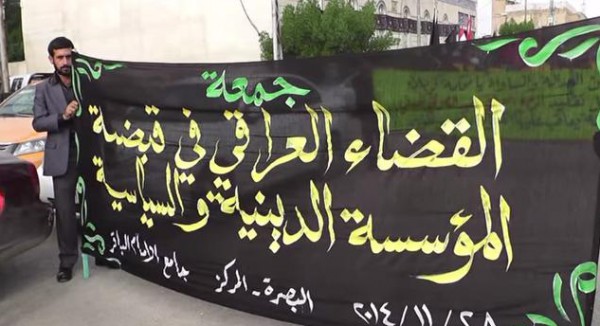 جمعة
القضاء العراقي في قبضة
المؤسسة الدينية والسياسية
البصرة - المركز جامع الامام الباقر
٢٠١٤/١١/٢٨